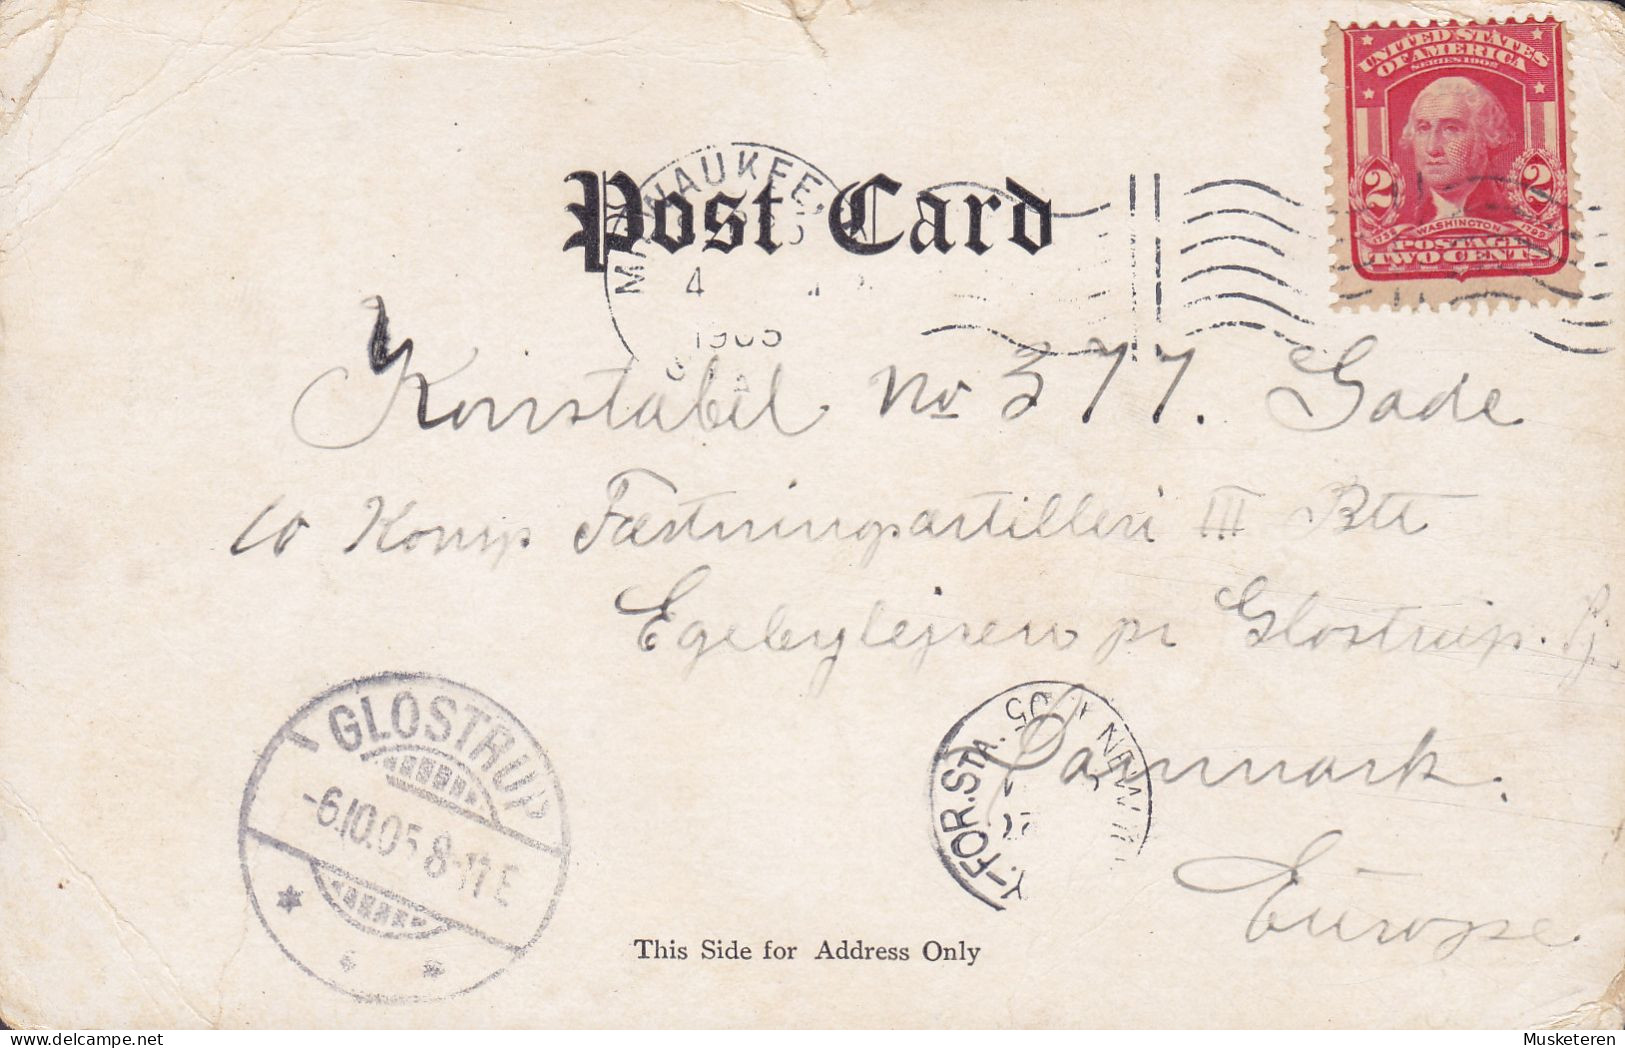 UNITED STATES
OF AMERICA
SERIES 1902
2 2
1732 WASHINGTON 1799
POSTAGE
TWO CENTS
MILWAUKEE,
4
1905
Post Card
Konstabel No 377. Gade
10 Komp Fæstningsartilleri III Btl
Egebylejren pr Glostrup. Sj.
Danmark.
Europe.
GLOSTRUP
-6.10.05 8-11 E
NEW
Y.-FOR.STA.
27
05
This Side for Address Only
Musketeren